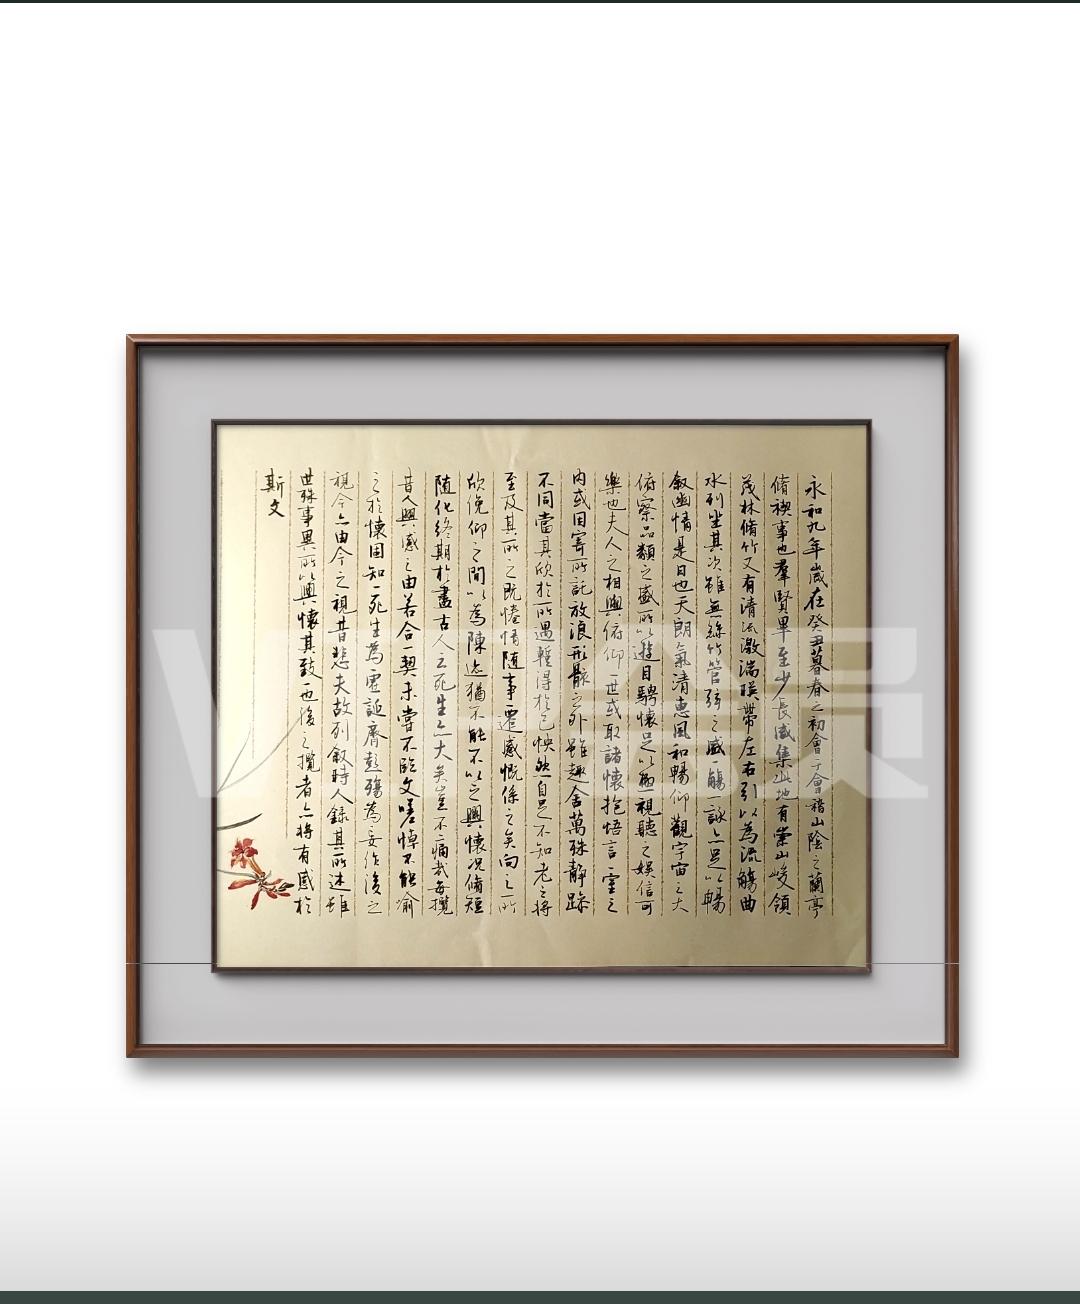 永和九年歲在癸丑暮春之初會于會稽山陰之蘭亭
脩禊事也羣賢畢至少長咸集此地有崇山峻領
茂林脩竹又有清流激湍暎帶左右引以為流觴曲
水列坐其次雖無絲竹管弦之盛一觴一詠亦足以暢
叙幽情是日也天朗氣清惠風和暢仰觀宇宙之大
俯察品類之盛所以遊目騁懷足以極視聽之娛信可
樂也夫人之相與俯仰一世或取諸懷抱悟言一室之
內或因寄所託放浪形骸之外雖趣舍萬殊靜躁
不同當其欣於所遇蹔得於己怏然自足不知老之將
至及其所之既惓情隨事遷感慨係之矣向之所
欣俛仰之間以為陳迹猶不能不以之興懷況脩短
隨化終期於盡古人云死生亦大矣豈不痛哉每攬
昔人興感之由若合一契未嘗不臨文嗟悼不能喻
之於懷固知一死生為虛誕齊彭殤為妄作後之
視今亦由今之視昔悲夫故列叙時人錄其所述雖
世殊事異所以興懷其致一也後之攬者亦將有感於
斯文
VIP会员